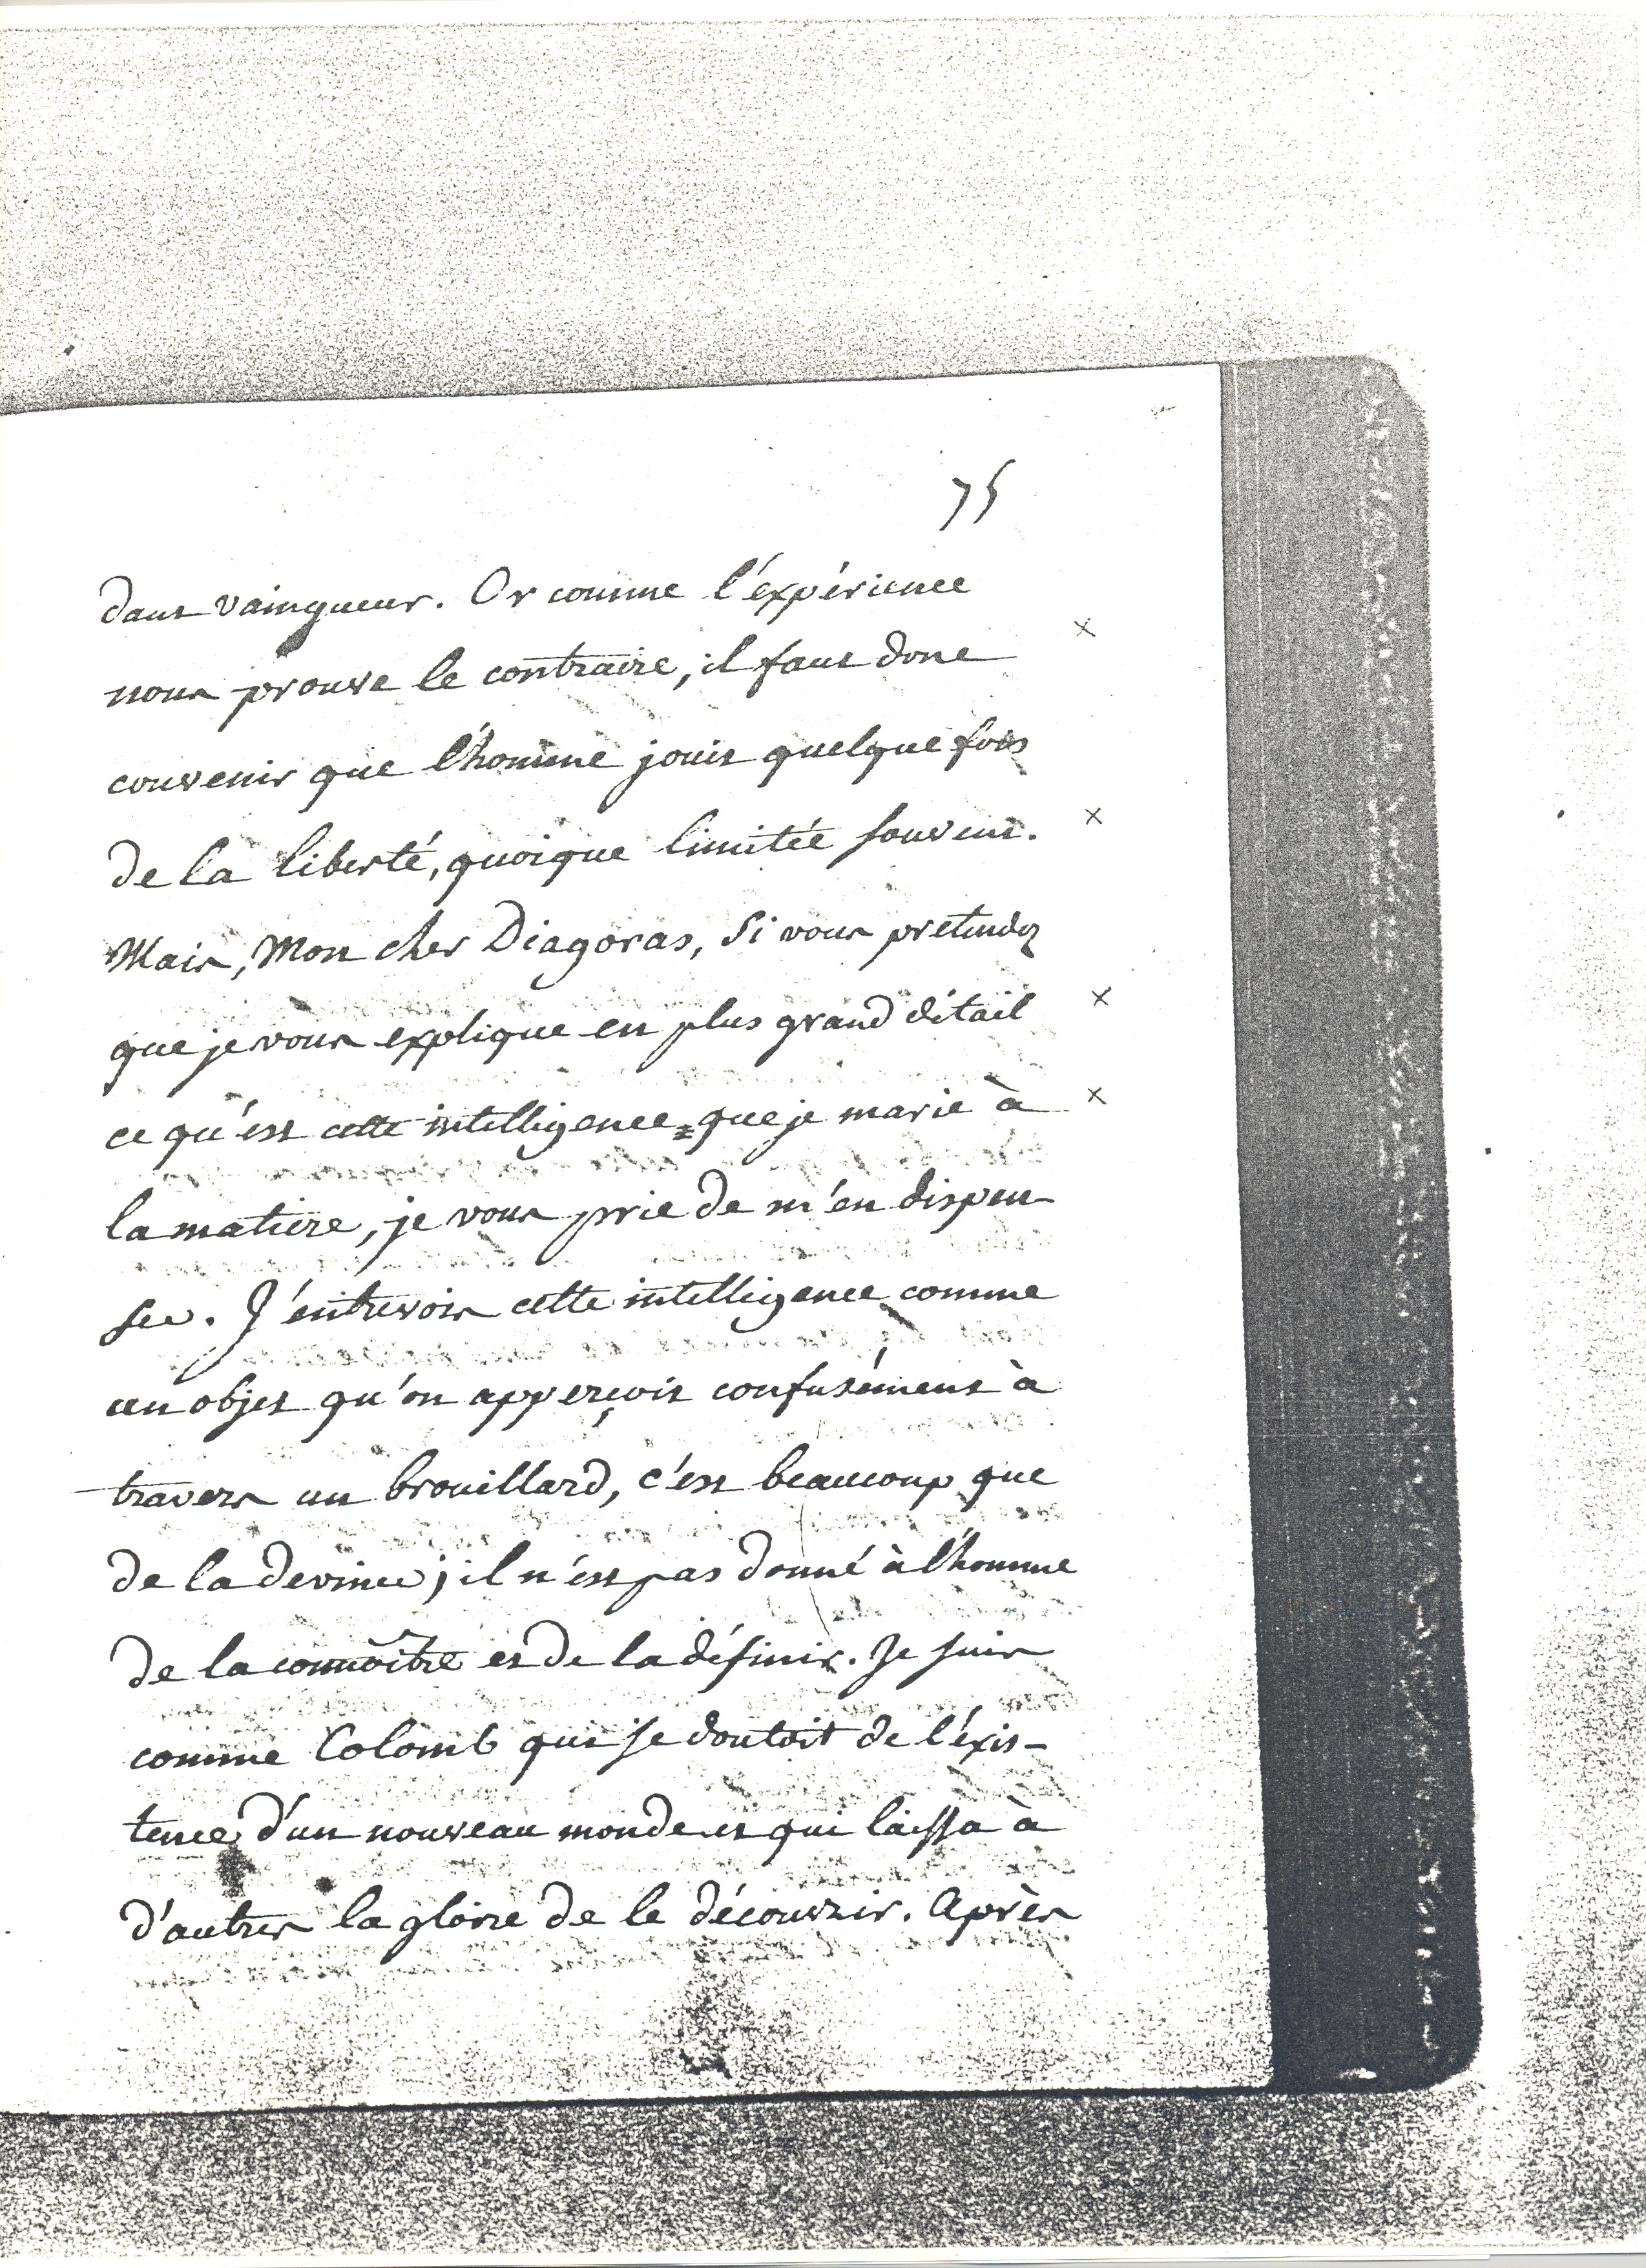 75
dant vainqueur. Or comme l'éxpérience
nous prouve le contraire, il faut donc ×
convenir que l'homme jouit quelque fois
de la liberté, quoique limitée souvent. ×
Mais, Mon cher Diagoras, si vous pretendez
que je vous explique en plus grand détail ×
ce qu'est cette intelligence que je marie à ×
la matiere, je vous prie de m'en dispen
ser. J'entrevois cette intelligence comme
un objet qu'on apperçoit confusément à
travers un brouillard, c'est beaucoup que
de la deviner; il n'est pas donné à l'homme
de la connoître et de la définir. Je suis
comme Colomb qui se doutoit de l'éxis-
tence d'un nouveau monde et qui laissa à
d'autres la gloire de le découvrir. Après